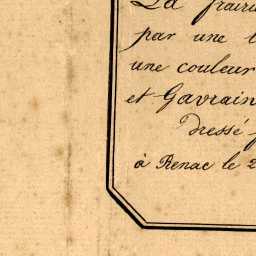 La prairi
par une t
une couleur
et Gavrain
Dressé
à Renac le 2